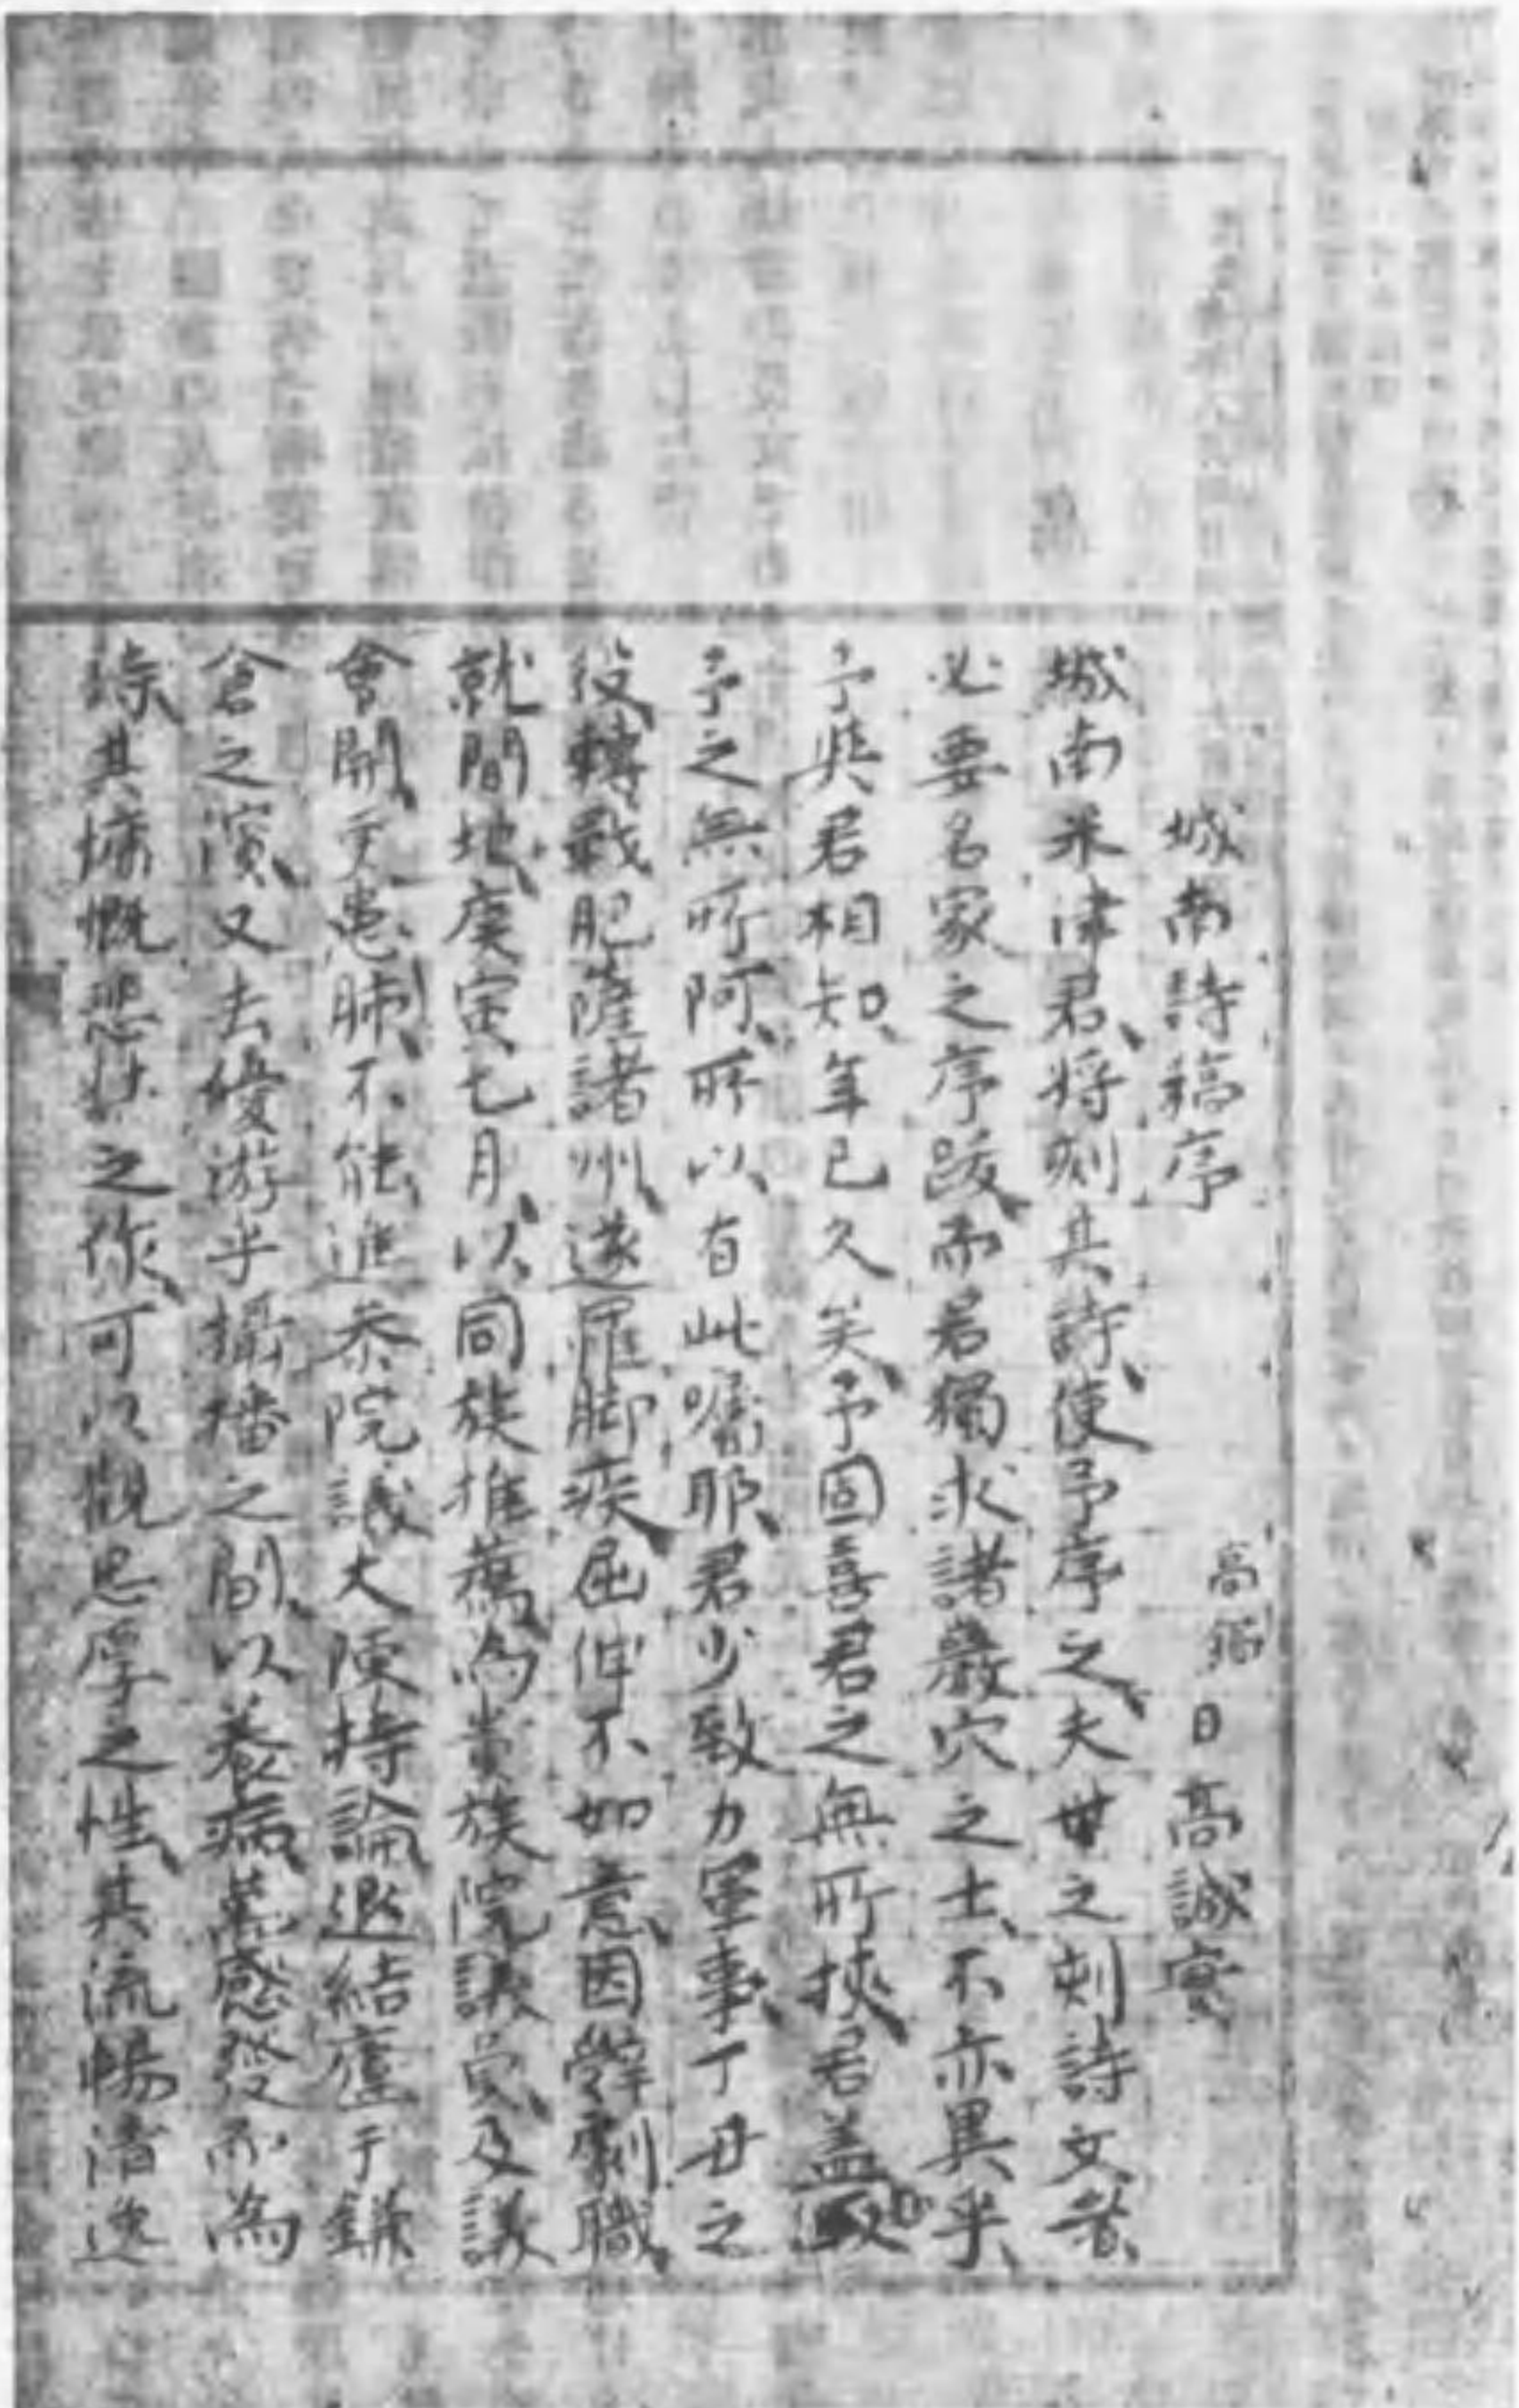 城南詩稿序
高鍋 日高誠實
城南米津君、将刻其詩、使予序之、夫世之刻詩文者、
必要名家之序跋、而君獨求諸巖穴之士、不亦異乎、
予與君相知、年已久矣、予固喜君之無所挾、君盖知
予之無所阿、所以有此嘱耶、君少致力軍事、丁丑之
役、轉戦肥薩諸州、遂罹脚疾、屈伸不如意、因辭劇職、
就間地、庚寅七月、以同族推薦、為貴族院議員、及議
會開、又患肺、不能進参院議大陳持論、退結廬于鎌
倉之濱、又去優游乎摂播之間、以養病、蓋感發而為
詠、其慷慨悲壮之作、可以観忠厚之性、其流暢清逸